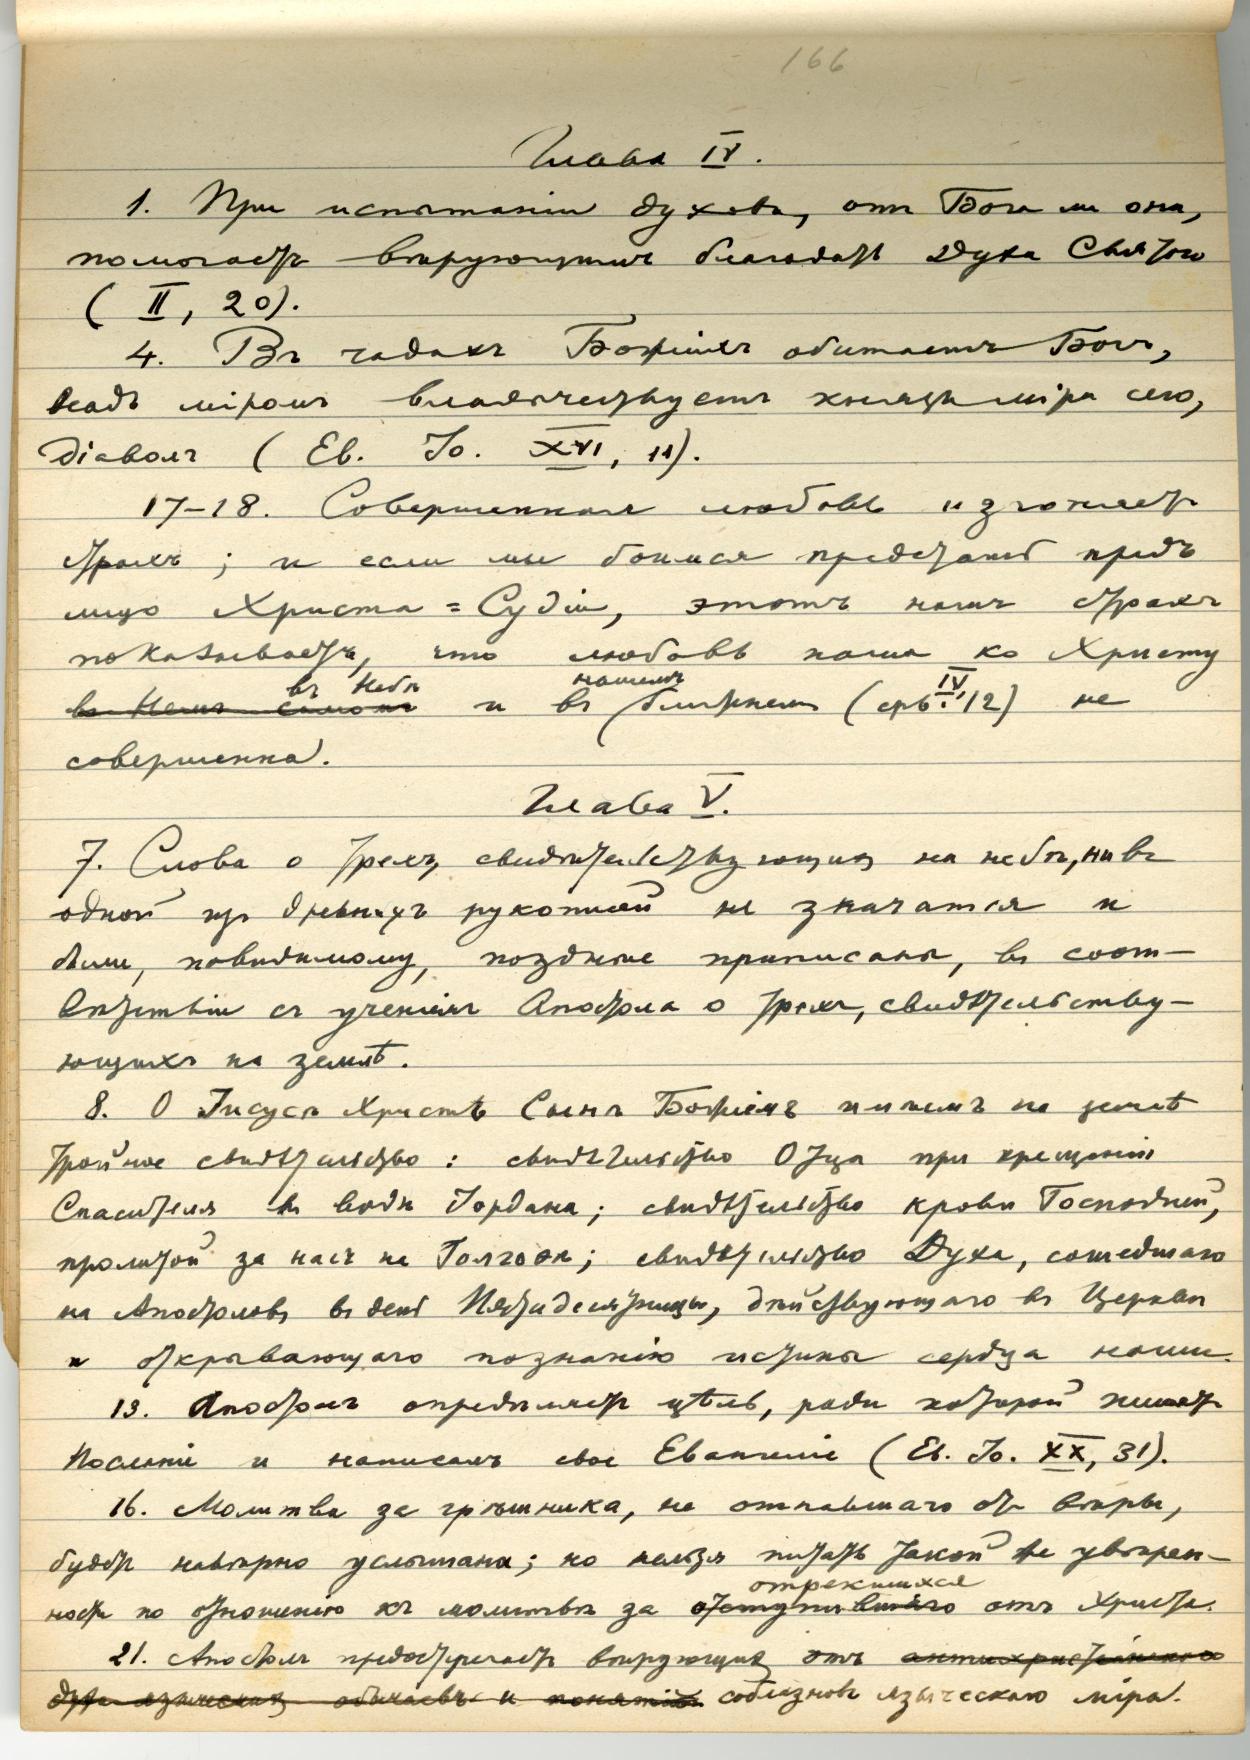 166
Глава IV.
1. При испытаніи духовъ, отъ Бога ли они,
помогаетъ вѣрующимъ благодать Духа Святого
(II, 20).
4. Въ чадахъ Божіихъ обитаетъ Богъ,
надъ міромъ владычествуетъ князь міра сего,
діаволъ (Ев. Іо. XVI, 11).
17-18. Совершенная любовь изгоняетъ
страхъ; и если мы боимся предстать предъ
лицо Христа=Судіи, этотъ нашъ страхъ
показываетъ, что любовь наша ко Христу
въ Небѣ нашемъ IV
въ Немъ самомъ и въ ближнемъ (срв. 12) не
совершенна.
Глава V.
7. Слова о трехъ, свидѣтельствующихъ на небѣ, ни въ
одной изъ древнихъ рукописей не значатся и
были, повидимому, позднѣе приписаны, въ соот-
вѣтствіи съ ученіемъ Апостола о трехъ, свидѣтельству-
ющихъ на землѣ.
8. О Іисусѣ Христѣ Сынѣ Божіемъ имѣемъ на землѣ
тройное свидѣтельство: свидѣтельство Отца при крещеніи
Спасителя въ водѣ Іордана; свидѣтельство крови Господней,
пролитой за насъ на Голгоѳѣ; свидѣтельство Духа, сошедшаго
на Апостоловъ въ день Пятидесятницы, дѣйствующаго въ Церкви
и открывающаго познанію истины сердца наши.
13. Апостолъ опредѣляетъ цѣль, ради которой пишетъ
Посланіе и написалъ свое Евангеліе (Ев. Іо. XX, 31).
16. Молитва за грѣшника, не отпавшаго отъ вѣры,
будетъ навѣрно услышана; но нельзя питать такой же увѣрен-
отрекшихся
ности по отношенію къ молитвѣ за отступившаго отъ Христа.
21. Апостолъ предостерегаетъ вѣрующихъ отъ антихристіанскаго
духа языческихъ обычаевъ и понятій соблазновъ языческаго міра.